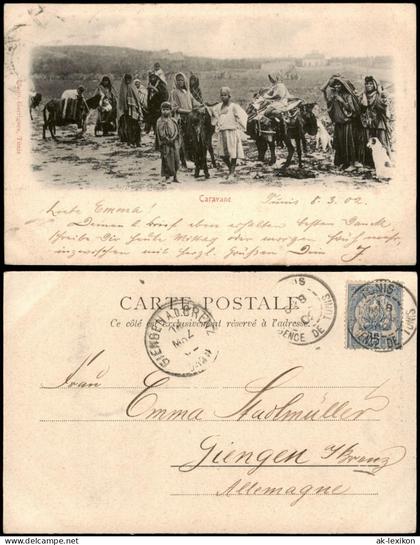 Caravane
Tunis 8.3.02.
Liebe Emma!
Deinen l. Brief eben erhalten besten Dank,
schreibe Dir heute Mittag oder morgen früh
inzwischen mit herzl. Grüßen Dein
CARTE POSTALE
Ce côté est exclusivement réservé à l'adresse.
GIENGEN A.D. BRENZ
Frau
Emma Stadlmüller
Giengen a/Brenz
Allemagne
© ak-lexikon
ak-lexikon.de